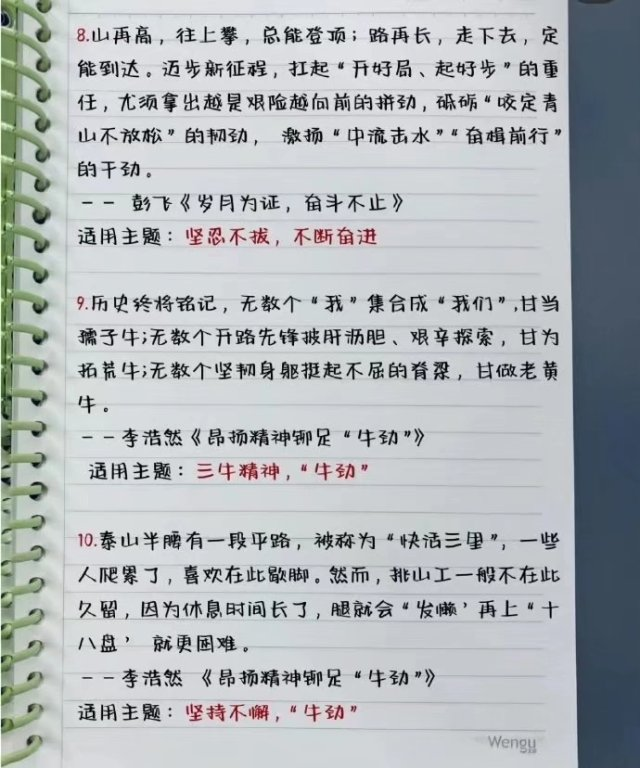 8.山再高，往上攀，总能登顶；路再长，走下去，定
能到达。迈步新征程，扛起“开好局、起好步”的重
任，尤须拿出越是艰险越向前的拼劲，砥砺“咬定青
山不放松”的韧劲， 激扬“中流击水”“奋楫前行”
的干劲。
—— 彭飞《岁月为证，奋斗不止》
适用主题：坚忍不拔，不断奋进
9.历史终将铭记，无数个“我”集合成“我们”,甘当
孺子牛;无数个开路先锋披肝沥胆、艰辛探索，甘为
拓荒牛;无数个坚韧身躯挺起不屈的脊梁，甘做老黄
牛。
——李浩然《昂扬精神铆足“牛劲”》
适用主题：三牛精神，“牛劲”
10.泰山半腰有一段平路，被称为“快活三里”，一些
人爬累了，喜欢在此歇脚。然而，挑山工一般不在此
久留，因为休息时间长了，腿就会“发懒’再上“十
八盘’ 就更困难。
——李浩然 《昂扬精神铆足“牛劲”》
适用主题：坚持不懈，“牛劲”
Wengu